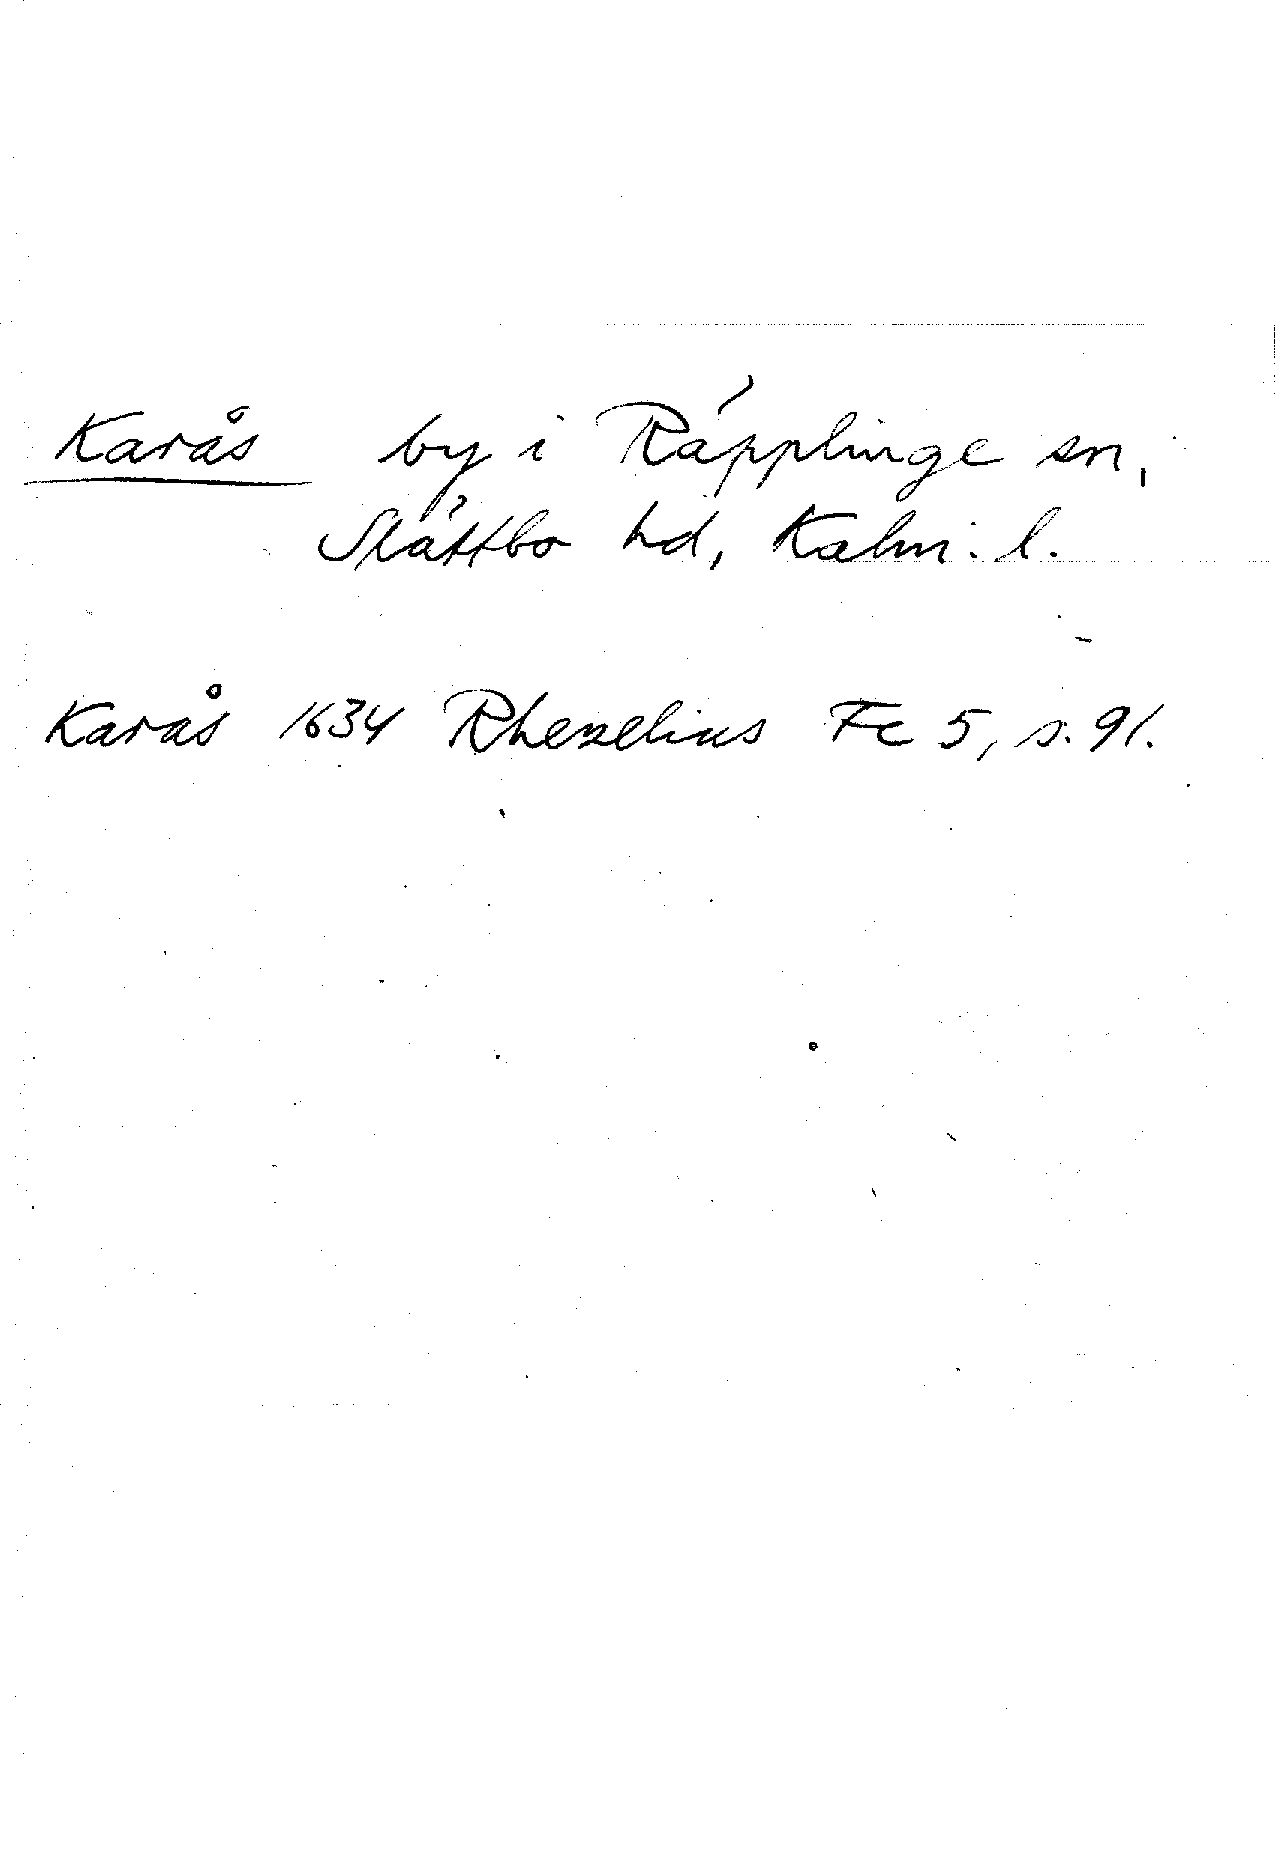 Karås by i Räpplinge sn,
Slättbo hd, Kalm. l.
Karås 1634 Rhezelius Fc 5, s. 91.